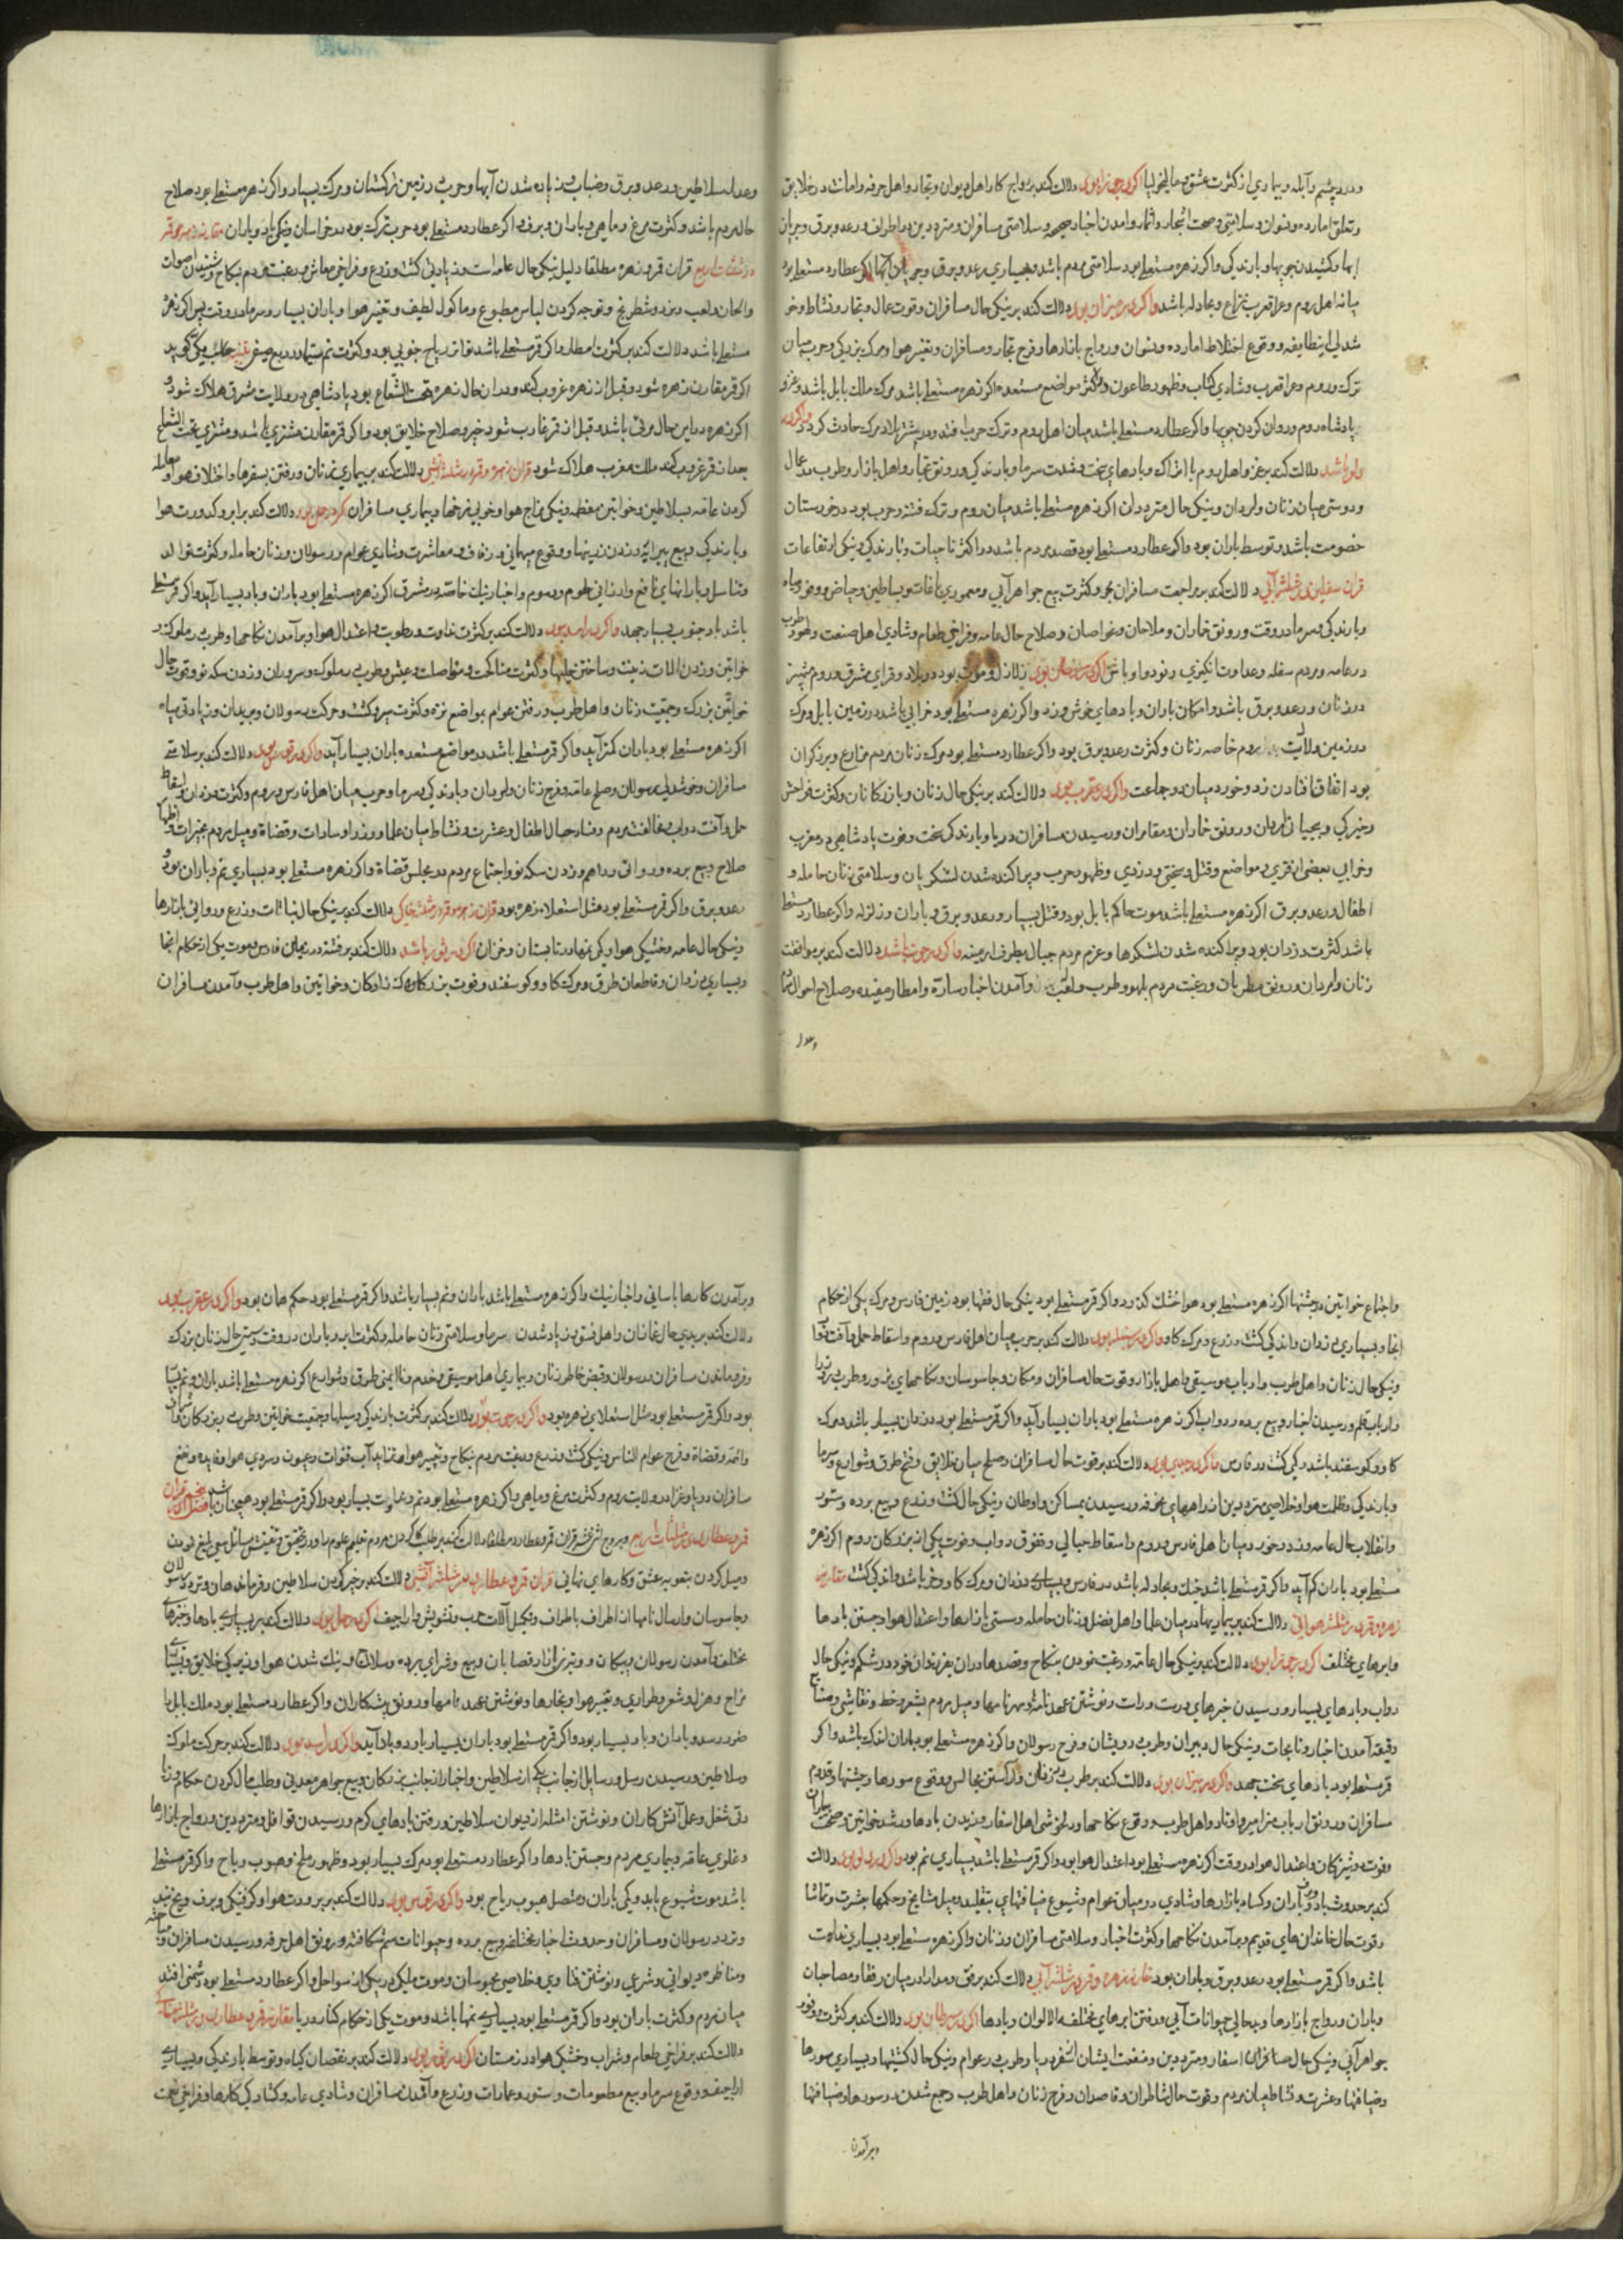 و درد چشم و آبله و بیماری از کثرت عشق و مالیخولیا اکر در جوزا بود دلالت کند بر رواج کار اهل دیوان و تجار و اهل حرفه و امانت در خلایق
و تعلق امارده و نسوان و سلامتی و صحت اشجار و اثمار و امدن اخبار صحیحه و سلامتی مسافران و مترددین در اطراف و رعد و برق و جریان
ابها و اکر زهره مستعلی بود سلامتی مردم باشد و بسیاری رعد و برق و اکر عطارد مستعلی بود
میانه اهل روم و عراق عرب نزاع و مجادله باشد و اکر در میزان بود دلالت کند بر نیکی حال مسافران و قوت عمال و تجار و نشاط و خو
شدلی این طایفه و وقوع اختلاط امارده و نسوان و رواج بازارها و فرح تجار و مسافران و تغیر هوا و مرک بزرکی و حرب میان
ترک و روم و عراق عرب و شادی کتاب و ظهور طاعون در اکثر مواضع مستعده اکر زهره مستعلی باشد مرک ملک بابل باشد و غزو
پادشاه روم و روان کردن جویها و اکر عطارد مستعلی باشد میان اهل روم و ترک حرب افتد و در بیشتر بلاد مرک حادث کردد و اکر در
دلو باشد دلالت کند بر غزو اهل روم با اتراک و بادهای سخت و شدت سرما و بارندکی و رونق تجار و اهل بازار و طرب عمال
و دوستی میان زنان و امردان و نیکی حال متردران اکر زهره مستعلی باشد میان روم و ترک فتنه و حرب بود و در خوزستان
خصومت باشد و توسط باران بود و اکر عطارد مستعلی بود قصد مردم باشد و در اکثر ناحیات و بارندکی و نیکی ارتفاعات
قران سفلیین در مثلثه آبی دلالت کند بر مراجعت مسافران بحر و کثرت بیع جواهر آبی و معموری باغات و بساطین و حیاض و وفور میاه
و بارندکی و سرما در وقت و رونق خماران و ملاحان و غواصان و صلاح حال عامه و فراخی طعام و شادی اهل صنعت و لهو و طرب
در عامه و مردم سفله و عداوت رنود و اوباش اکر در سرطان بود زلازل و موت بود در بلاد و قرای مشرق و روم
در زنان و رعد و برق باشد و امکان باران و بادهای خوش وزد و اکر زهره مستعلی بود خرابی باشد در زمین بابل و مرک
در زمین ولایت روم خاصه زنان و کثرت رعد و برق بود و اکر عطارد مستعلی بود مرک زنان مردم مزارع و برزکران
بود اتفاق افتادن زد و خورد میان دو جماعت و اکر در عقرب بود دلالت کند بر نیکی حال زنان و بازرکانان و کثرت فواحش
و خیرکی و بیحیایی امردان و رونق خماران و مقامران و رسیدن مسافران دریا و بارندکی سخت و فوت پادشاهی در مغرب
و خرابی بعضی از قری در مواضع و قتل و سختی و دزدی و ظهور حرب و پراکنده شدن لشکریان و سلامتی زنان حامله و
اطفال و رعد و برق اکر زهره مستعلی باشد موت حاکم بابل بود و قتل بسیار و رعد و برق و باران و زلزله و اکر عطارد مستعلی
باشد کثرت دزدان بود و پراکنده شدن لشکرها و عزم مردم جبال بطرف ارمینه و اکر در حوت باشد دلالت کند بر موافقت
زنان و امردان و رونق مطربان و رغبت مردم بلهو و طرب و لعب و آمدن اخبار ساره و امطار مفیده و صلاح احوال
وعدل
وعدل سلاطین و رعد و برق و ضباب و زیاده شدن آبها و حرب در زمین ترکستان و مرک بسیار و اکر زهره مستعلی بود صلاح
حال مردم باشد و کثرت مرغ و ماهی و باران و برف و اکر عطارد مستعلی بود حرب ترک بود در خراسان و نیکی باد و باران مقارنه زهره و قمر
در مثلثات اربع قران قمر و زهره مطلقا دلیل نیکی حال عامه است و زیادتی کشت و زرع و فراخی معاش و رغبت مردم بنکاح و شنیدن اصوات
و الحان و لعب و نرد و شطرنج و توجه کردن لباس مطبوع و ماکول لطیف و تغیر هوا و باران بسیار و سرما در وقت پس اکر زهره
مستعلی باشد دلالت کند بر کثرت امطار و اکر قمر مستعلی باشد تواتر ریاح جنوبی بود و کثرت نم سیما در ربع صیفی تنبیه کوید
اکر قمر مقارن زهره شود و قبل از زهره غروب کند و در ان حال زهره تحت الشعاع بود پادشاهی در ولایت شرق هلاک شود و
اکر زهره در این حال مرئی باشد و قبل از قمر غارب شود خیر و صلاح خلایق بود و اکر قمر مقارن مشتری باشد و مشتری تحت الشعاع
بعد از قمر غروب کند ملک مغرب هلاک شود قران زهره و قمر در مثلثه آتشی دلالت کند بر بیماری زنان و رفتن بسفرها و اختلاف هوا و معامله
کردن عامه بسلاطین و خواتین معظمه و نیکی مزاج هوا و خوبی نرخها و بیماری مسافران اکر در حمل بود دلالت کند بر ابر و کدورت هوا
و بارندکی و بیع پیرایه و زدن زینها و وقوع مهمانی و زفاف و معاشرت و شادی عوام و رسولان و زنان حامله و کثرت توالد
و تناسل و بارانهای نافع و ارزانی طعوم و رسوم و اخبار نیک خاصه در مشرق اکر زهره مستعلی بود باران و باد بسیار آید و اکر قمر مستعلی
باشد باد جنوب بسیار جهد و اکر در اسد بود دلالت کند بر کثرت نداوت و رطوبت و اعتدال هوا و برآمدن نکاحها و طرب در ملوک و
خواتین و زدن الات زینت و ساختن و کثرت مناکحت و مواصلت و عیش و طرب در ملوک و سروران و زدن سکه نو و قوت حال
خواتین بزرک و جمعیت زنان و اهل طرب و رفتن عوام بمواضع نزه و کثرت سیر و کشت و حرکت رسولان و بریدان و زیادتی میاه
اکر زهره مستعلی بود باران کمتر آید و اکر قمر مستعلی باشد در مواضع مستعده باران بسیار آید و اکر در قوس بود دلالت کند بر سلامتی
مسافران و خوشدلی رسولان و صلح عامه و فرح زنان و امردان و بارندکی و سرما و حرب میان اهل فارس و روم و کثرت دزدان و اسقاط
حمل و آفت دواب و مخالفت مردم و فساد حال اطفال و عشرت و نشاط میان علما و وزرا و سادات و قضاة و میل مردم بخیرات و اظهار
صلاح و بیع برده و روائی دراهم و زدن سکه نو و اجتماع مردم در مجلس قضاة و اکر زهره مستعلی بود بسیاری نم و باران بود و
رعد و برق و اکر قمر مستعلی بود مثل استعلاء زهره بود قران زهره و قمر در مثلثه خاکی دلالت کند بر نیکی حال نباتات و زرع و روائی بازارها
و نیکی حال عامه و خشکی هوا و کمی نمها در تابستان و خزان اکر در ثور باشد دلالت کند بر فتنه در زمین فارس و موت یکی از حکام انجا
و بسیاری دزدان و قاطعان طرق و مرک کاو و کوسفند و فوت بزرکزادکان و خواتین و اهل طرب و آمدن مسافران
و اجتماع خواتین در جشنها اکر زهره مستعلی بود هوا خشک کذرد و اکر قمر مستعلی بود نیکی حال فقها بود زمین فارس و مرک یکی از حکام
انجا و بسیاری دزدان و اندکی کشت و زرع و مرک کاو و اکر در سنبله بود دلالت کند بر حرب میان اهل فارس و روم و اسقاط حمل و آفت
و نیکی حال زنان و اهل طرب و ارباب موسیقی و اهل بازار و قوت حال مسافران و مکان و جاسوسان و نکاحهای مزور و طرب وزرا
و ارباب قلم و رسیدن اخبار و بیع برده و دواب اکر زهره مستعلی بود باران بسیار آید و اکر قمر مستعلی بود دزدان بسیار باشد و مرک
کاو و کوسفند باشد و کمی کشت در فارس و اکر در جدی بود دلالت کند بر قوت حال مسافران و صلح میان خلایق و فتح طرق و شوارع و سرما
و بارندکی و ظلمت هوا و خلاصی مترددین از راههای مخوفه و رسیدن بمساکن و اوطان و نیکی حال کشت و زرع و بیع برده و ستور
و انقلاب حال عامه و زد و خورد میان اهل فارس و روم و اسقاط حبالی و نفوق دواب و فوت یکی از بزرکان روم اکر زهره
مستعلی بود باران کم آید و اکر قمر مستعلی باشد جنک و مجادله باشد در فارس و بسیاری دزدان و مرک کاو و خر باشد و اندکی کشت مقارنه
زهره و قمر در مثلثه هوائی دلالت کند بر بیماریها در میان علما و اهل فضل و زنان حامله و سستی بازارها و اعتدال هوا و جستن بادها
و ابرهای مختلف اکر در جوزا بود دلالت کند بر نیکی حال عامه و رغبت نمودن بنکاح و قصد مادران بفرزندان خود و درد شکم و نیکی حال
دواب و بادهای بسیار و رسیدن خبرهای درست و راست و نوشتن عهدنامه و مهرنامها و میل مردم بشعر و خط و نقاشی و صنایع
دقیقه آمدن اخبار و نیکی حال دبیران و طرب درویشان و فرح رسولان و اکر زهره مستعلی بود باران اندک باشد و اکر
قمر مستعلی بود بادهای سخت جهد و اکر در میزان بود دلالت کند بر طرب و آراستن مجالس و وقوع سورها و جشنها و قدوم
مسافران و رونق ارباب مزامیر و اوتار و اهل طرب و وقوع نکاحها و دلخوشی اهل اسفار و وزیدن بادها و رشد خواتین و صحت بیماران
و فوت دوشیزکان و اعتدال هوا در وقت اکر زهره مستعلی بود اعتدال هوا بود و اکر قمر مستعلی باشد بسیاری نم بود و اکر در دلو بود دلالت
کند بر حدوث باد و برف و باران و کساد بازارها و شادی در میان عوام و شیوع ضیافتهای بتقلید و میل مشایخ و حکما بعشرت و تماشا
و قوت حال خاندانهای قدیم و برآمدن نکاحها و کثرت اخبار و سلامتی مسافران و زنان و اکر زهره مستعلی بود بسیاری نداوت
باشد و اکر قمر مستعلی بود رعد و برق و باران بود مقارنه زهره و قمر در مثلثه آبی دلالت کند بر رفق و مدارا در میان رفقا و مصاحبان
و باران و رواج بازارها و بدحالی حیوانات آبی و رفتن ابرهای مختلفه الالوان و بادها اکر در سرطان بود دلالت کند بر کثرت و وفور
جواهر آبی و نیکی حال مسافران اسفار و مترددین و منفعت ایشان از سفر دریا و طرب در عوام و نیکی حال کشتیها و بسیاری سورها
و ضیافتها و عشرت و نشاط میان مردم و قوت حال شاطران و قاصدان و فرح زنان و اهل طرب و جمع شدن در سورها و ضیافتها
و برآمدن
و برآمدن کارها باسانی و اخبار نیک و اکر زهره مستعلی باشد باران و نم بسیار باشد و اکر قمر مستعلی بود حکم همان بود و اکر در عقرب بود
دلالت کند بر بدی حال مغنیان و اهل فسق و زیاد شدن سرما و سلامتی زنان حامله و کثرت ابر و باران در وقت و بدی حال زنان بزرک
و فرو ماندن مسافران و رسولان و قبض خاطر زنان و بیماری اهل موسیقی و خدم و ناایمنی طرق و شوارع اکر زهره مستعلی باشد باران و نم بسیار
بود و اکر قمر مستعلی بود مثل استعلای زهره بود و اکر در حوت بود دلالت کند بر کثرت بارندکی و سیلها و جمعیت خواتین و طرب در بزرکان
و ائمه و قضاة و فرح عوام الناس و نیکی کشت و زرع و رغبت مردم بنکاح و تغییر هوا و تزاید آب قنوات و عیون و سردی هوا و فایده و نفع
مسافران دریا و غزا در ولایت روم و کثرت مرغ و ماهی و اکر زهره مستعلی بود نم و نداوت بسیار بود و اکر قمر مستعلی بود همچنان باشد
قمر و عطارد در مثلثات اربع و بروج اثنی عشر قران قمر و عطارد مطلقا دلالت کند بر طلب کردن مردم تعلیم علوم را و در تحقیق و تفتیش مسائل سعی بلیغ نمودن
و میل کردن بتعویه عشق و کارهای نهانی قران قمر و عطارد در مثلثه آتشی دلالت کند بر خبر کردن سلاطین و فرماندهان و تردد رسولان
و جاسوسان و ارسال نامها از اطراف باطراف و تکمیل آلات حرب و تشویش و اراجیف اکر در حمل بود دلالت کند بر بسیاری بادها و خبرهای
مختلف و آمدن رسولان و پیکان و تیزی بازار قصابان و بیع و شرای برده و سلاح و نیک شدن هوا و زیرکی خلایق و بسیاری
مزاح و هزل و شعر و طراری و تغییر هوا و بخارها و نوشتن عهدنامها و رونق پیشکاران و اکر عطارد مستعلی بود ملک بابل را
ضرر رسد و باران و باد بسیار بود و اکر قمر مستعلی بود باران بسیار بارد و باد آید و اکر در اسد بود دلالت کند بر حرکت ملوک
و سلاطین و رسیدن رسل و رسایل از جانب یکی از سلاطین و اخبار از جانب بزرکان و بیع جواهر معدنی و طلب مال کردن حکام و رواج
رونق شغل و عمل آتش کاران و نوشتن امثله از دیوان سلاطین و رفتن بادهای کرم و رسیدن قوافل و مترددین و رواج بازارها
و غلوی عامه و بیماری مردم و جستن بادها و اکر عطارد مستعلی بود مرک بسیار بود و ظهور ملخ و هبوب ریاح و اکر قمر مستعلی
باشد موت شیوع یابد و کمی باران و متصل هبوب ریاح بود و اکر در قوس بود دلالت کند بر برودت هوا و کرفتکی و برف و یخ بند
و تردد رسولان و مسافران و حدوث اخبار مختلفه و بیع برده و حیوانات سم شکافته و رونق اهل حرفه و رسیدن مسافران و مباحثه
و مناظره دیوانی و شرعی و نوشتن فتاوی و خلاصی محبوسان و موت ملکی در یکی از سواحل و اکر عطارد مستعلی بود دشمنی افتد
میان مردم و کثرت باران بود و اکر قمر مستعلی بود بسیاری نمها باشد و موت یکی از حکام کنار دریا مقارنه قمر و عطارد در مثلثه خاکی
دلالت کند بر فراخی طعام و شراب و خشکی هوا در زمستان اکر در ثور بود دلالت کند بر نقصان کیاه و توسط بارندکی و بسیاری
اراجیف و وقوع سرما و بیع مطعومات و ستور و عمارات و زرع و آمدن مسافران و شادی عامه و کشادکی کارها و فراخی نعمت